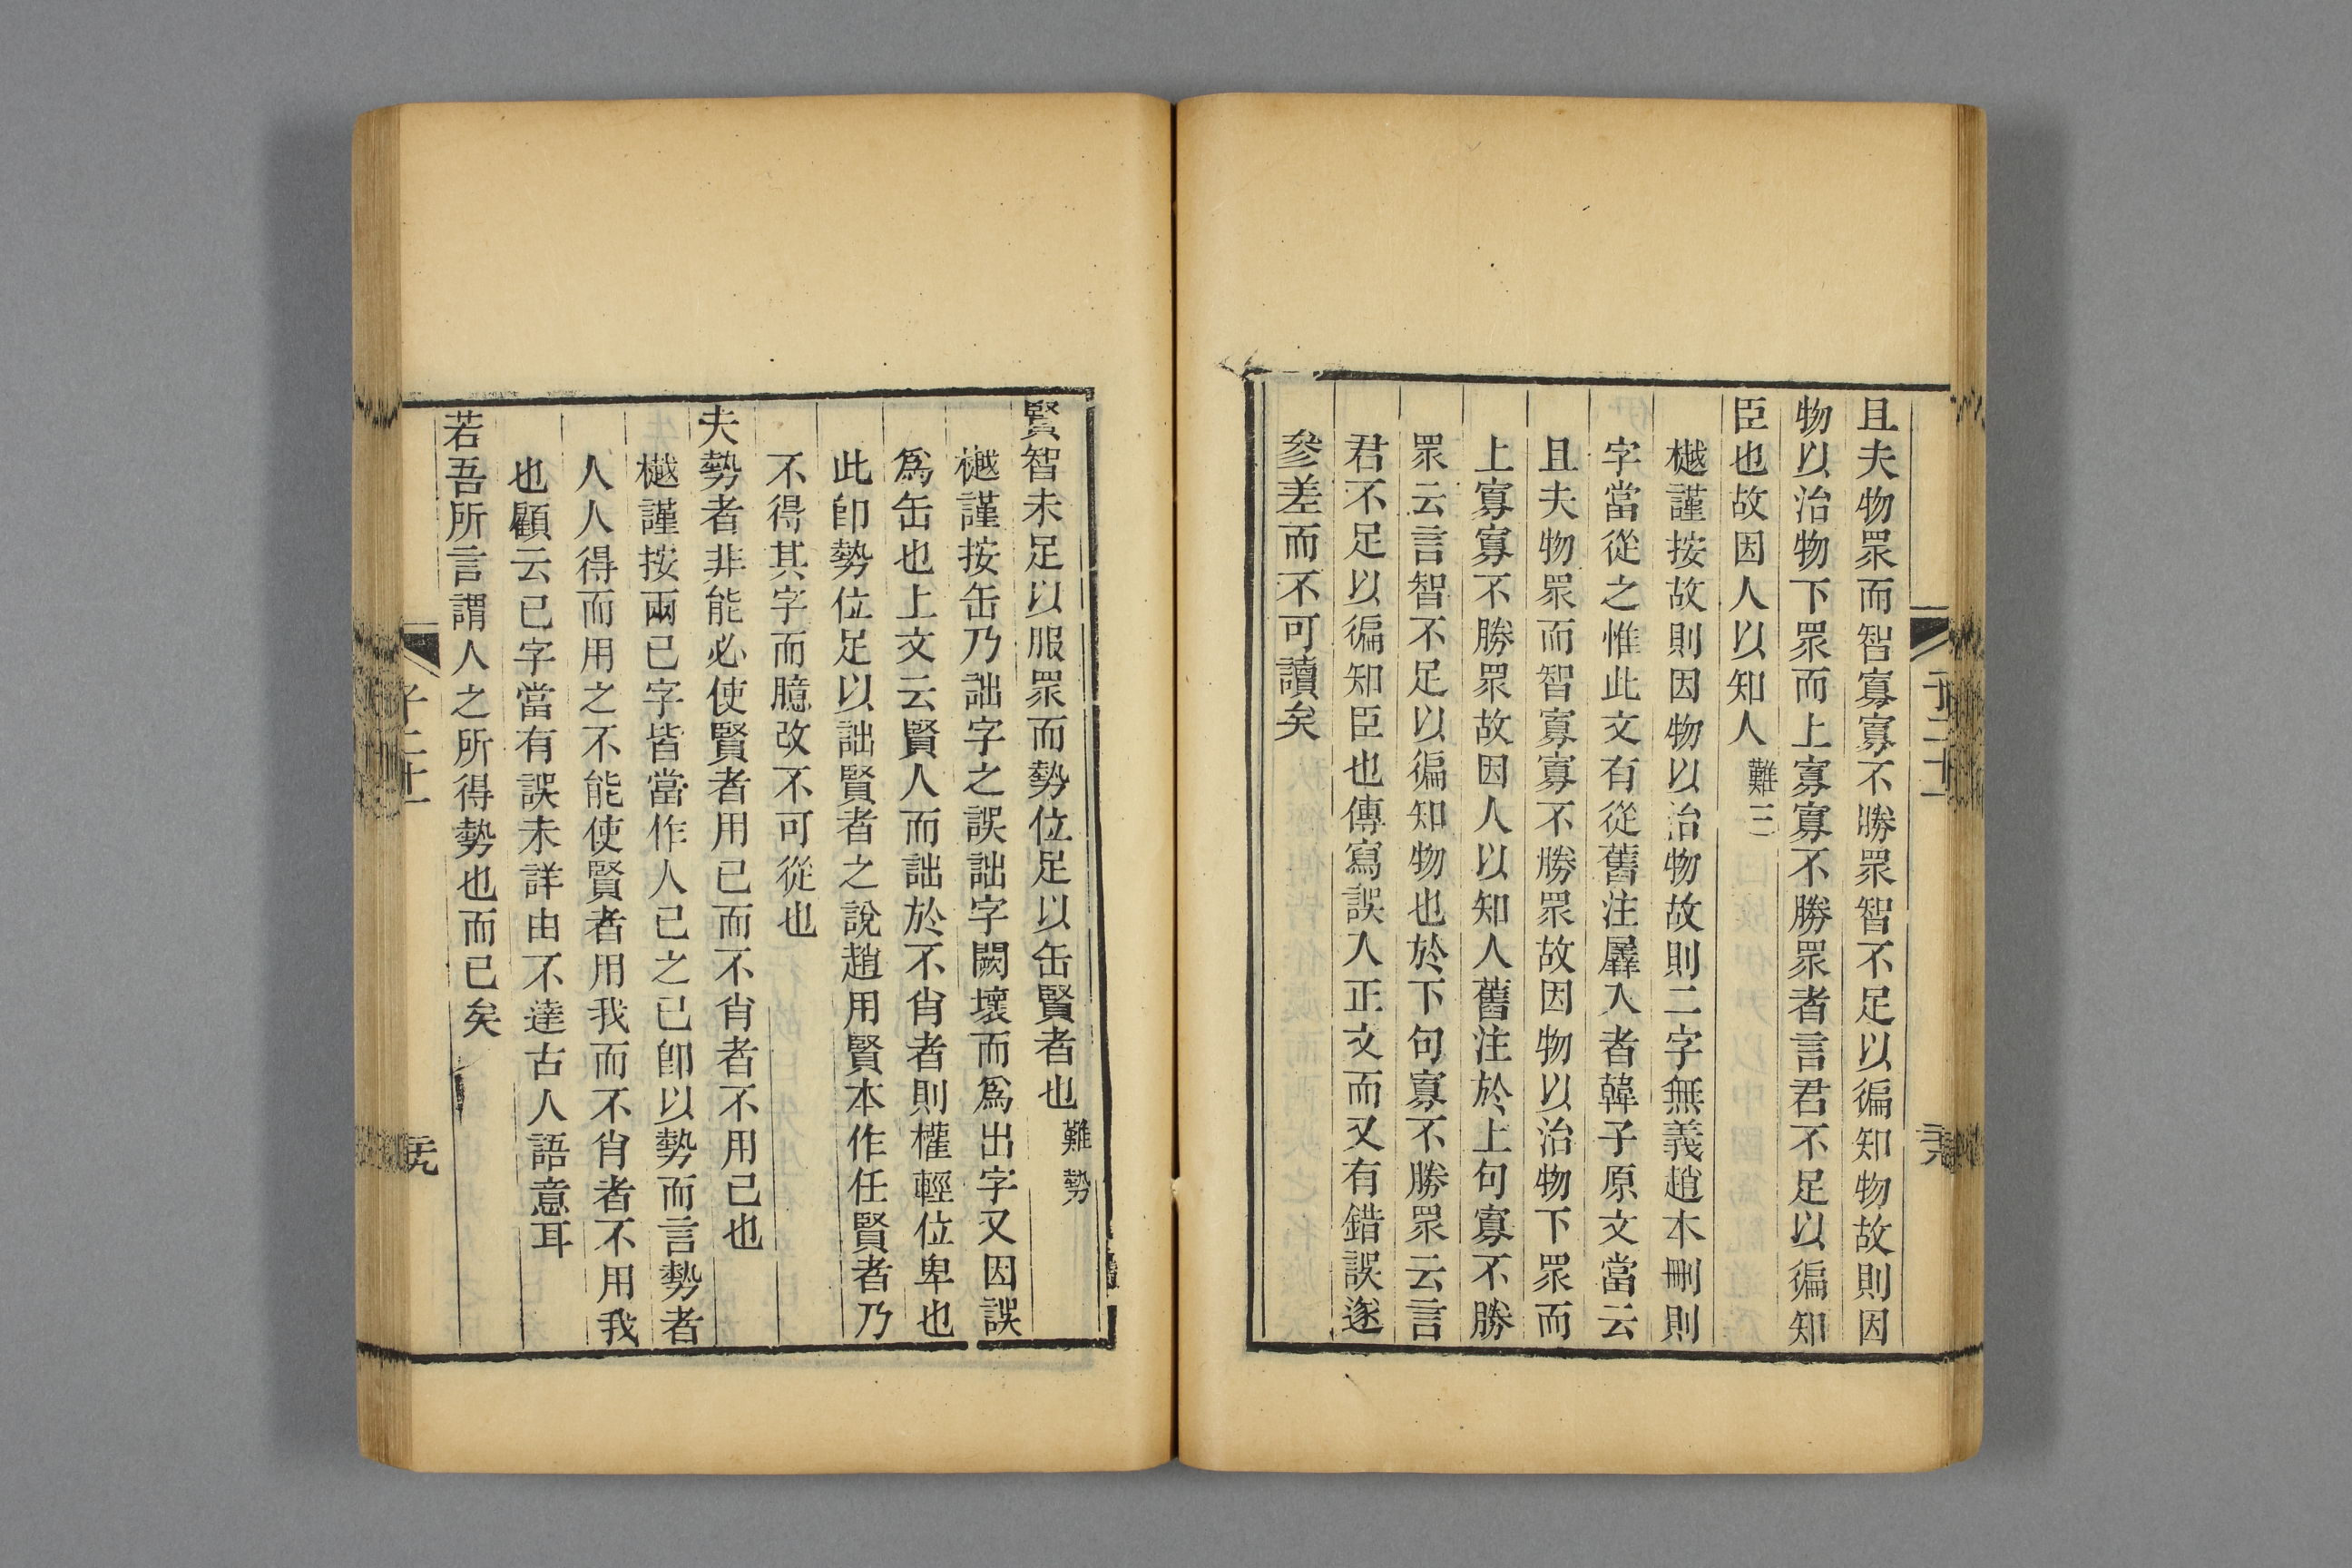 且夫物眾而智寡寡不勝眾智不足以徧知物故則因
物以治物下眾而上寡寡不勝眾者言君不足以徧知
臣也故因人以知人難三
樾謹按故則因物以治物故則二字無義趙本刪則
字當從之惟此文有從舊注羼入者韓子原文當云
且夫物眾而智寡寡不勝眾故因物以治物下眾而
上寡寡不勝眾故因人以知人舊注於上句寡不勝
眾云言智不足以徧知物也於下句寡不勝眾云言
君不足以徧知臣也傳寫誤入正文而又有錯誤遂
參差而不可讀矣
賢智未足以服眾而勢位足以缶賢者也難勢
樾謹按缶乃詘字之誤詘字闕壞而為出字又因誤
為缶也上文云賢人而詘於不肖者則權輕位卑也
此卽勢位足以詘賢者之說趙用賢本作任賢者乃
不得其字而臆改不可從也
夫勢者非能必使賢者用已而不肖者不用已也
樾謹按兩已字皆當作人已之已卽以勢而言勢者
人人得而用之不能使賢者用我而不肖者不用我
也顧云已字當有誤未詳由不達古人語意耳
若吾所言謂人之所得勢也而已矣
子二十一